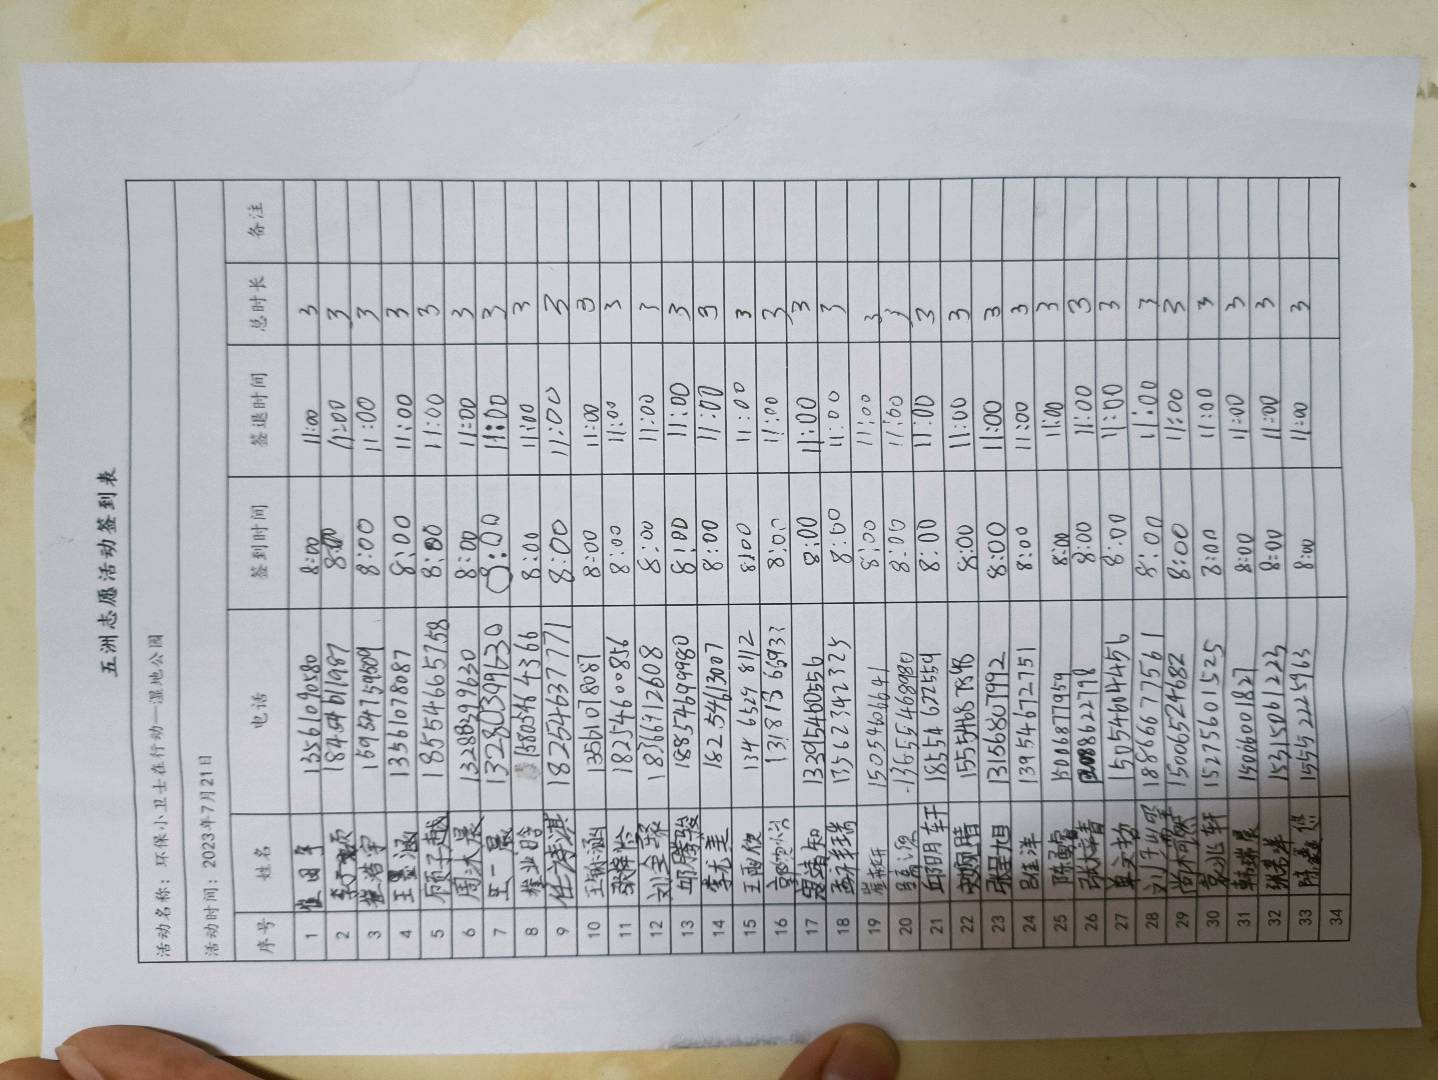 五洲志愿活动签到表
活动名称：环保小卫士在行动—湿地公园
活动时间：2023年7月21日
序号 姓名 电话 签到时间 签退时间 总时长 备注
1 13561090580 8:00 11:00 3
2 8:00 11:00 3
3 15954759809 8:00 11:00 3
4 王墨涵 13561078087 8:00 11:00 3
5 顾子越 18554665758 8:00 11:00 3
6 8:00 11:00 3
7 王一晨 8:00 11:00 3
8 15805464366 8:00 11:00 3
9 任清淇 18254637771 8:00 11:00 3
10 13561078087 8:00 11:00 3
11 18254600856 8:00 11:00 3
12 18366912608 8:00 11:00 3
13 邱腾骏 18854699980 8:00 11:00 3
14 李尤美 18254613007 8:00 11:00 3
15 王雨欣 134 6529 8112 8:00 11:00 3
16 8:00 11:00 3
17 13395460556 8:00 11:00 3
18 13562342325 8:00 11:00 3
19 15054606641 8:00 11:00 3
20 13655468980 8:00 11:00 3
21 邱明轩 18554622559 8:00 11:00 3
22 8:00 11:00 3
23 张呈旭 13156807992 8:00 11:00 3
24 吕佳洋 13954672751 8:00 11:00 3
25 15006877959 8:00 11:00 3
26 8:00 11:00 3
27 15054604456 8:00 11:00 3
28 18866677561 8:00 11:00 3
29 15006524682 8:00 11:00 3
30 15275601525 8:00 11:00 3
31 15060001827 8:00 11:00 3
32 15315061223 8:00 11:00 3
33 15552225963 8:00 11:00 3
34